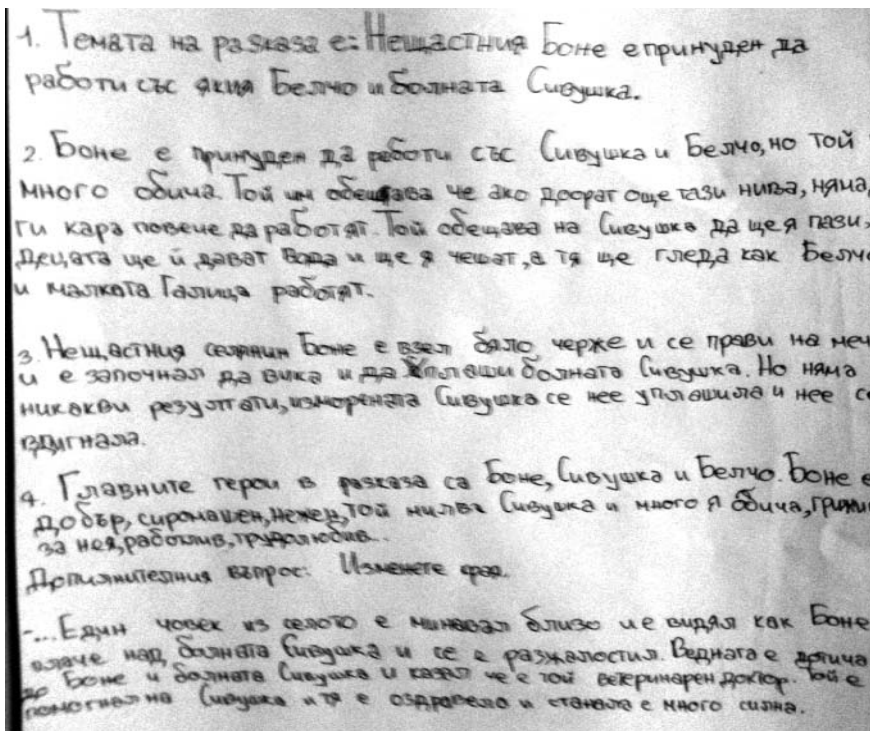 1. Темата на разказа е: Нещастния Боне е принуден да
работи със якия Белчо и болната Сивушка.
2. Боне е принуден да работи със Сивушка и Белчо, но той
много обича. Той им обещава че ако доорат още тази нива, няма
ги кара повече да работят. Той обещава на Сивушка да ще я пази,
децата ще ѝ дават вода и ще я чешат, а тя ще гледа как Белчо
и малката Галица работят.
3. Нещастния селянин Боне е взел бяло черже и се прави на меч
и е започнал да вика и да уплаши болната Сивушка. Но няма
никакви резултати, изморената Сивушка се нее уплашила и нее се
вдигнала.
4. Главните герои в разказа са Боне, Сивушка и Белчо. Боне е
добър, сиромашен, нежен, той милва Сивушка и много я обича, грижи
за нея, работлив, трудолюбив..
Допълнителния въпрос: Изменете края.
-... Един човек из селото е минавал близо и е видял как Боне
плаче над болната Сивушка и се е разжалостил. Веднага е дотича
до Боне и болната Сивушка и казал че е той ветеринарен доктор. Той е
помогнал на Сивушка и тя е оздравела и станала е много силна.